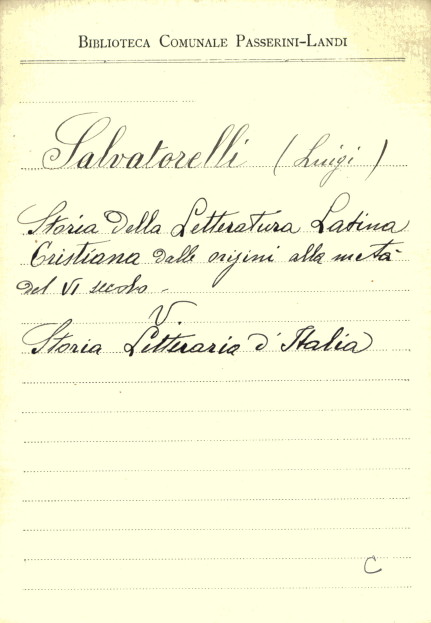 BIBLIOTECA COMUNALE PASSERINI-LANDI
Salvatorelli (Luigi)
Storia della Letteratura Latina
Cristiana dalle origini alla metà
del VI secolo -
V.
Storia Letteraria d'Italia
C